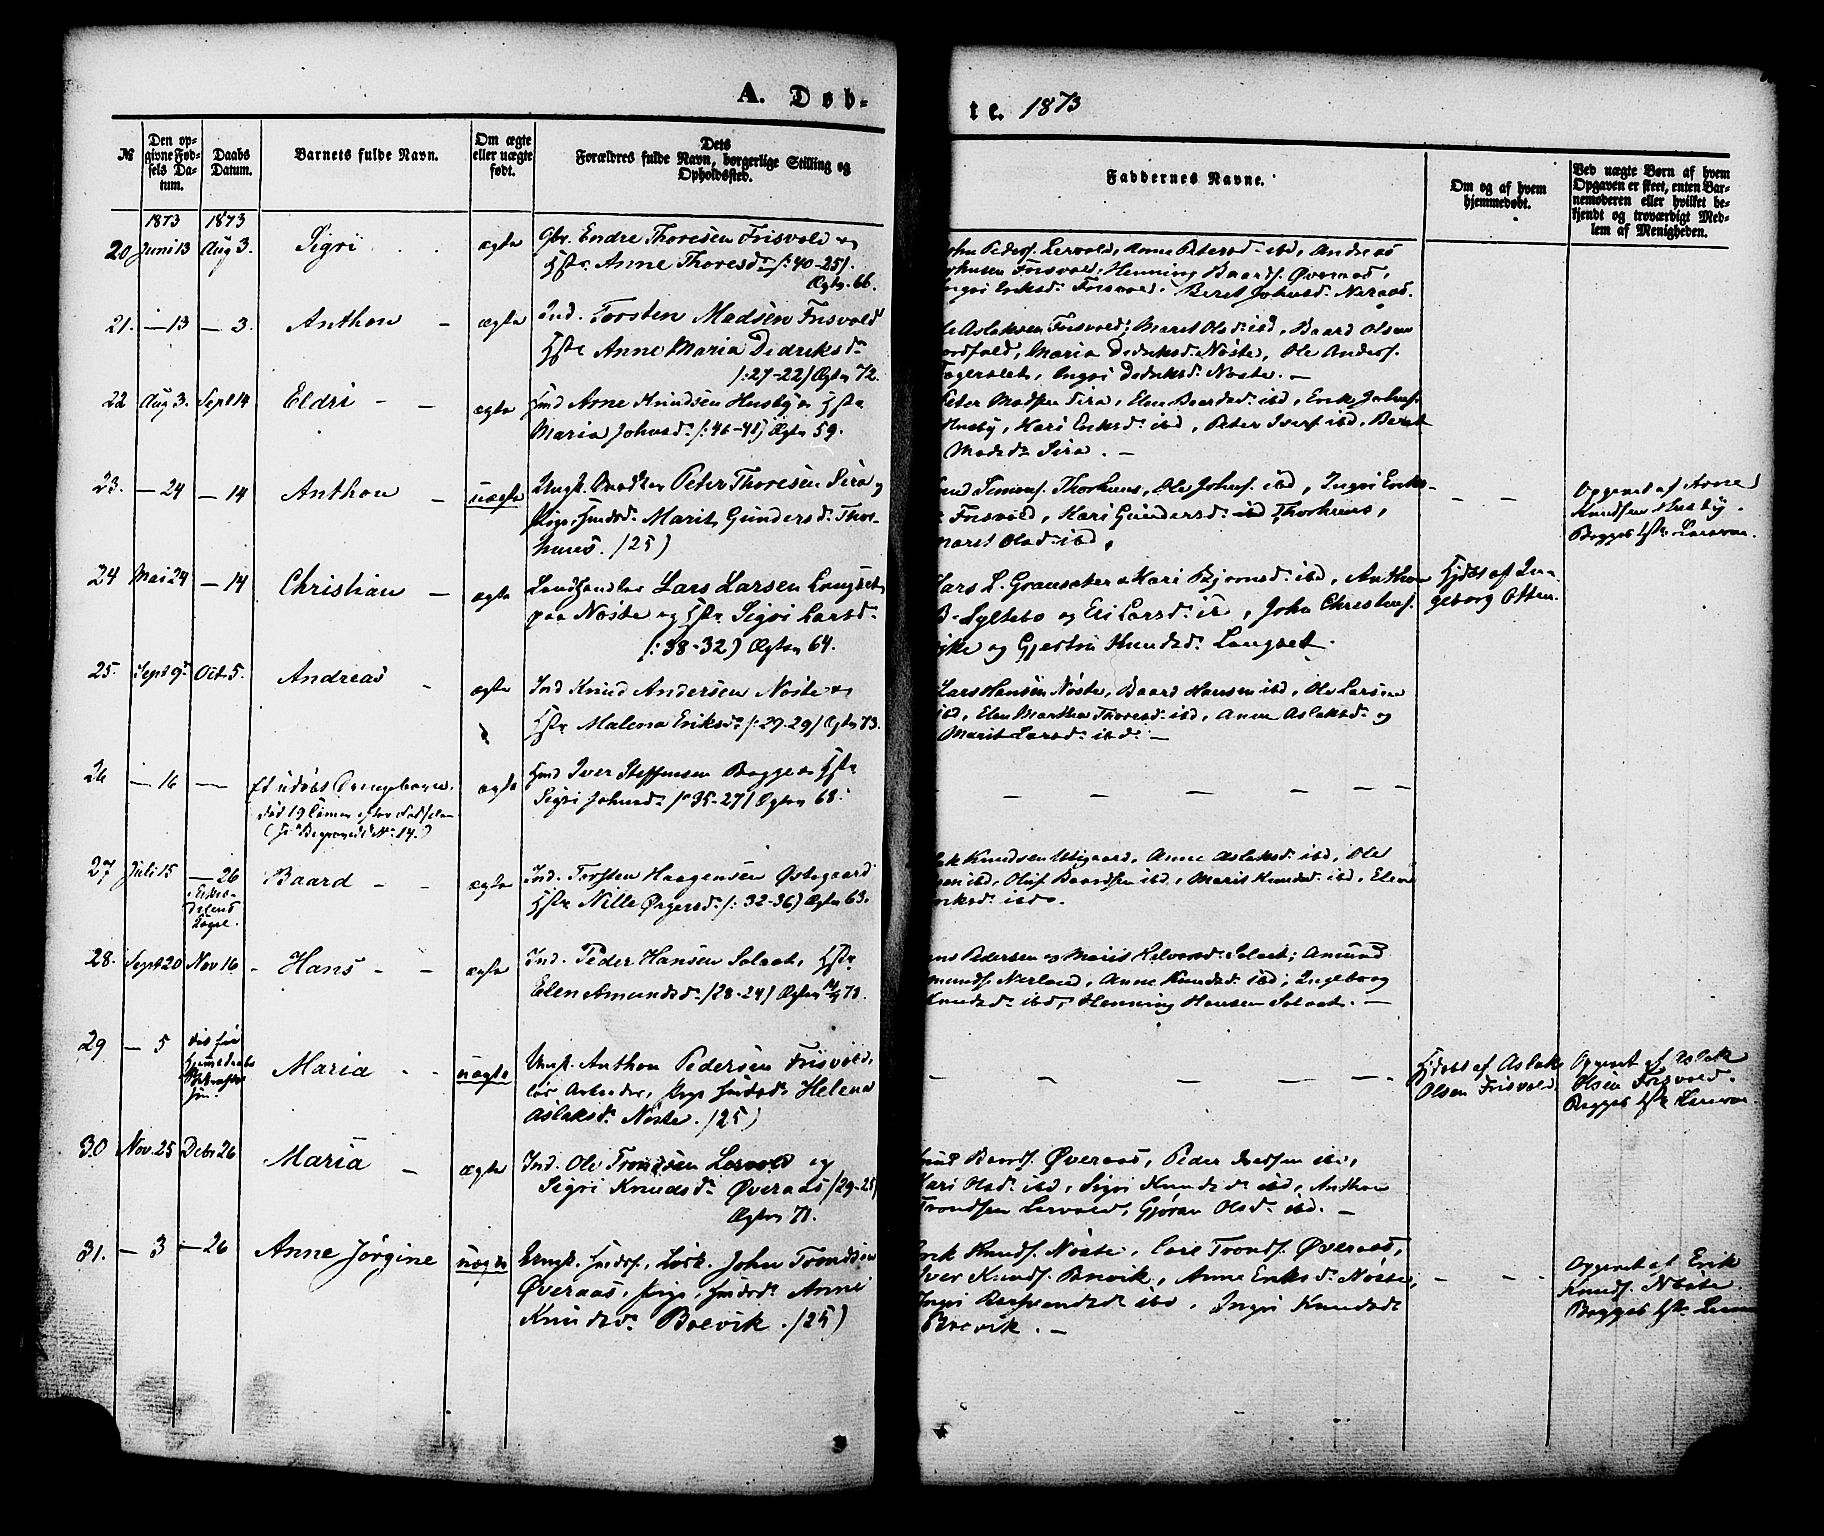 A. Døb-
te. 1873
№
Den op-
givne Fød-
sels Da-
tum.
Daabs
Datum.
Barnets fulde Navn.
Om ægte
eller uægte
født.
Dets
Forældres fulde Navn, borgerlige Stilling og
Opholdssted.
Faddernes Navne.
Om og af hvem
hjemmedøbt.
Ved uægte Børn af hvem
Opgaven er skeet, enten Bar-
nemoderen eller hvilket be-
kjendt og troværdigt Med-
lem af Menigheden.
1873 1873
20 Juni 13 Aug 3. Sigri ægte Gbr. Endre Thoresen Frisvold og
Hstr Anne Thoresd. /:40-25/.
Ægtev. 66.
Peders. Lervold, Anne Petersd. ibd, Andreas
Frisvold, Henning Baards. Øveraas,
Ingri Eriksd. Frisvold, Beret Johnsd. Neraas.
21. — 13 — 3. Anthon — ægte Ind. Torsten Madsen Frisvold
Hstr Anne Maria Didriksd.
/:27-22/ Ægtev 72.
Ole Aslaksen Frisvold, Maret Olsd. ibd, Baard Olsen
Maria Didriksd. Nöste, Ole Anders.
Ingri Didriksd. Nöste. —
22 Aug 3. Sept 14 Eldri - — ægte Gmd Arne Knudsen Husby og Hstr
Maria Johnsd. /:46-41/ Ægtev 59.
Peter Madsen Sira, Elen Baardsd. ibd, Erik Johns.
Husby, Kari Eriksd. ibd, Peter Ivers. ibd, Beret
Madsd. Sira. —
23. — 24 — 14 Anthon — uægte Ungk. Peter Thoresen Sira og
Pige Marit Gundersd. Thor-
huus. /25/
Simons. Thorhuus, Ole Johns. ibd, Ingri Eriks-
Frisvold, Kari Gundersd. ibd Thorhuus,
Maret Olsd. ibd,
— —
Opgivet af Arne
Knudsen Husby.
Begges 1ste Leierm.
24 Mai 24 — 14 Christian — ægte Landhandler Lars Larsen Langset
paa Nöste og Hstr Sigri Larsd.
/:38-32/ Ægtev 64.
Lars L. Gransæter og Kari Bjørnsd. ibd, Anthon
B. Syltebø og Eli Larsd. ib, John Christens.
og Gjertru Knudsd. Langset.
Hjdøbt af In-
geborg Ottem.
25. Sept 9. Oct. 5. Andreas - ægte Ind Knud Andersen Nöste og
Hstr Malena Eriksd. /:27-29/ Ægtev 73.
Lars Hansen Nöste, Baard Hansen ibd, Ole Larsen
ibd, Elen Martha Thoresd. ibd, Anne Aslaksd. og
Marit Larsd. ibd. —
26 — 16 — Et udøbt Drengebarn,
død 19 Timer efter Fødselen
(Begravede № 14.)
ægte Gmd Iver Steffensen Bugge og Hstr
Sigri Johnsd. /:35-27/ Ægtev 68.
— — — — —
27 Juli 15 — 26
Eikis-
dalens
Baard - - ægte Ind. Torsten Haagensen Østigaard
Hstr Nille Ørgersd. /:32-36/ Ægtev 63.
Knudsen Utigaard, Anne Aslaksd. ibd, Ole
ibd, Oluf Baardsen ibd, Marit Knudsd. ibd, Elen
Eriksd. ibd.
28. Sept 20 Nov 16 - Hans - - ægte Ind. Peder Hansen Solset, Hstr
Elen Amundsd. /28-24/ Ægtev 73.
Pedersen og Marit Solset, Amund
Nerland, Anne Knudsd. ibd, Ingeborg
Knudsd. ibd, Henning Hansen Solset. —
29 — 5 Maria - - uægte Ungk. Anthon Pedersen Frisvold,
løs Arbeider, Pige Helena
Aslaksd. Nöste. /25/
— — — — —
Hjdøbt af Aslak
Olsen Frisvold.
Opgivet af Aslak
Olsen Frisvold.
Begges 1ste Leierm.
30 Nov. 25 Debr 26 Maria — ægte Ind. Ole Trondsen Lervold og
Sigri Knudsd. Øveraas /29-25/
Ægtev 71.
Knud Baards. Øveraas, Peder ibd,
Kari Olsd. ibd, Sigri Knudsd. ibd, Anthon
Trondsen Lervold, Gjøran Olsd. ibd. —
31. — 3 — 26 Anne Jörgine uægte Ungk. John Trondsen
Øveraas, Pige, Anne
Knudsd. Brevik. /25/
Erik Knuds. Nöste, Tronds. Øveraas,
Iver Knuds. Brevik, Anne Eriksd. Nöste,
Ingri ibd, Ingri Knudsd.
Brevik. —
- - -
Opgivet af Erik
Knuds. Nöste.
Begges 1ste